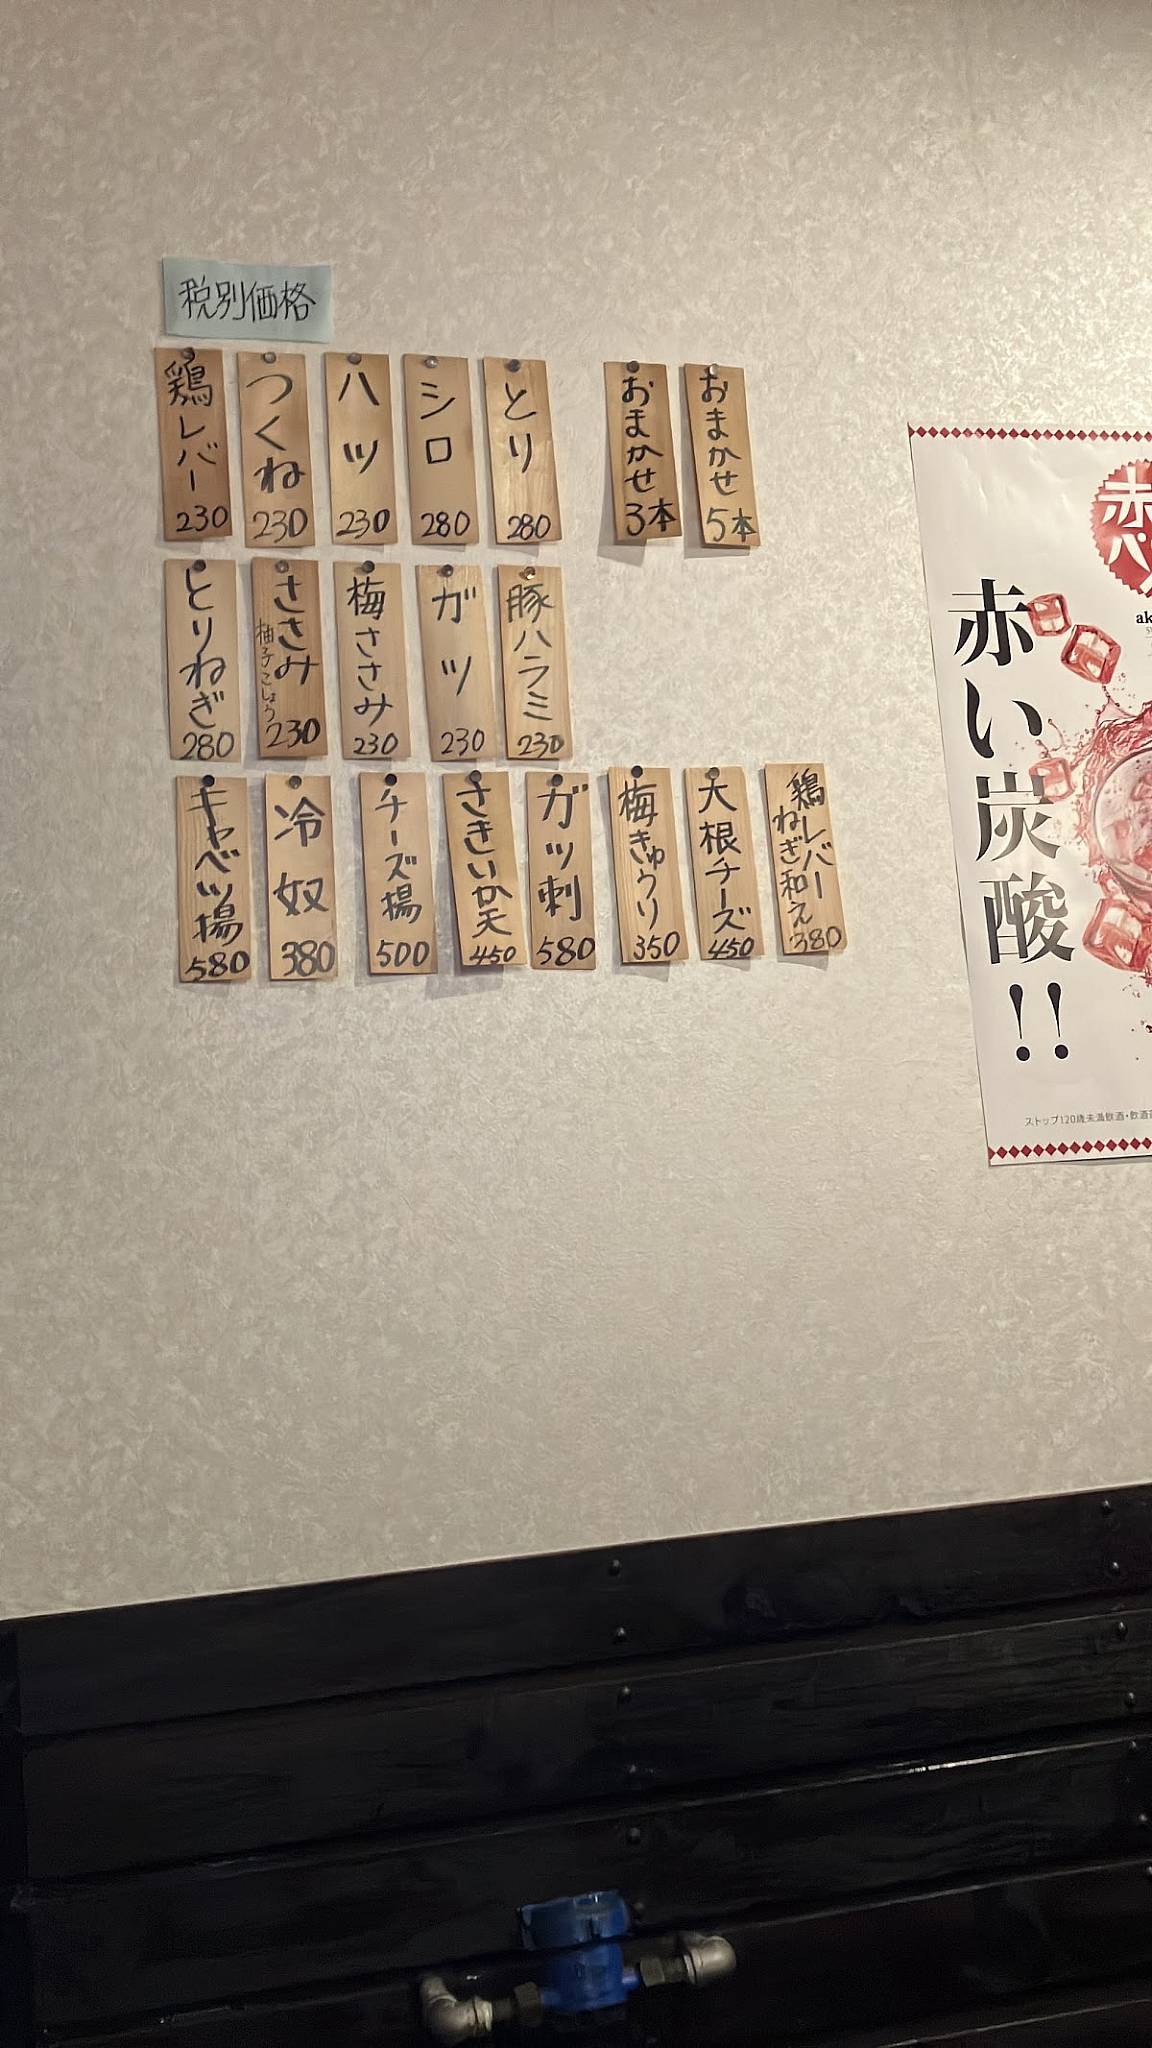 税別価格
鶏レバー 230
つくね 230
ハツ 230
シロ 280
とり 280
おまかせ3本
おまかせ5本
とりねぎ 280
ささみ 柚子こしょう 230
梅ささみ 230
ガツ 230
豚ハラミ 230
キャベツ揚 580
冷奴 380
チーズ揚 500
さきいか天 450
ガツ刺 580
梅きゅうり 350
大根チーズ 450
鶏レバー
ねぎ和え 380
赤
パ
ak
赤い炭酸!!
ストップ!20歳未満飲酒・飲酒